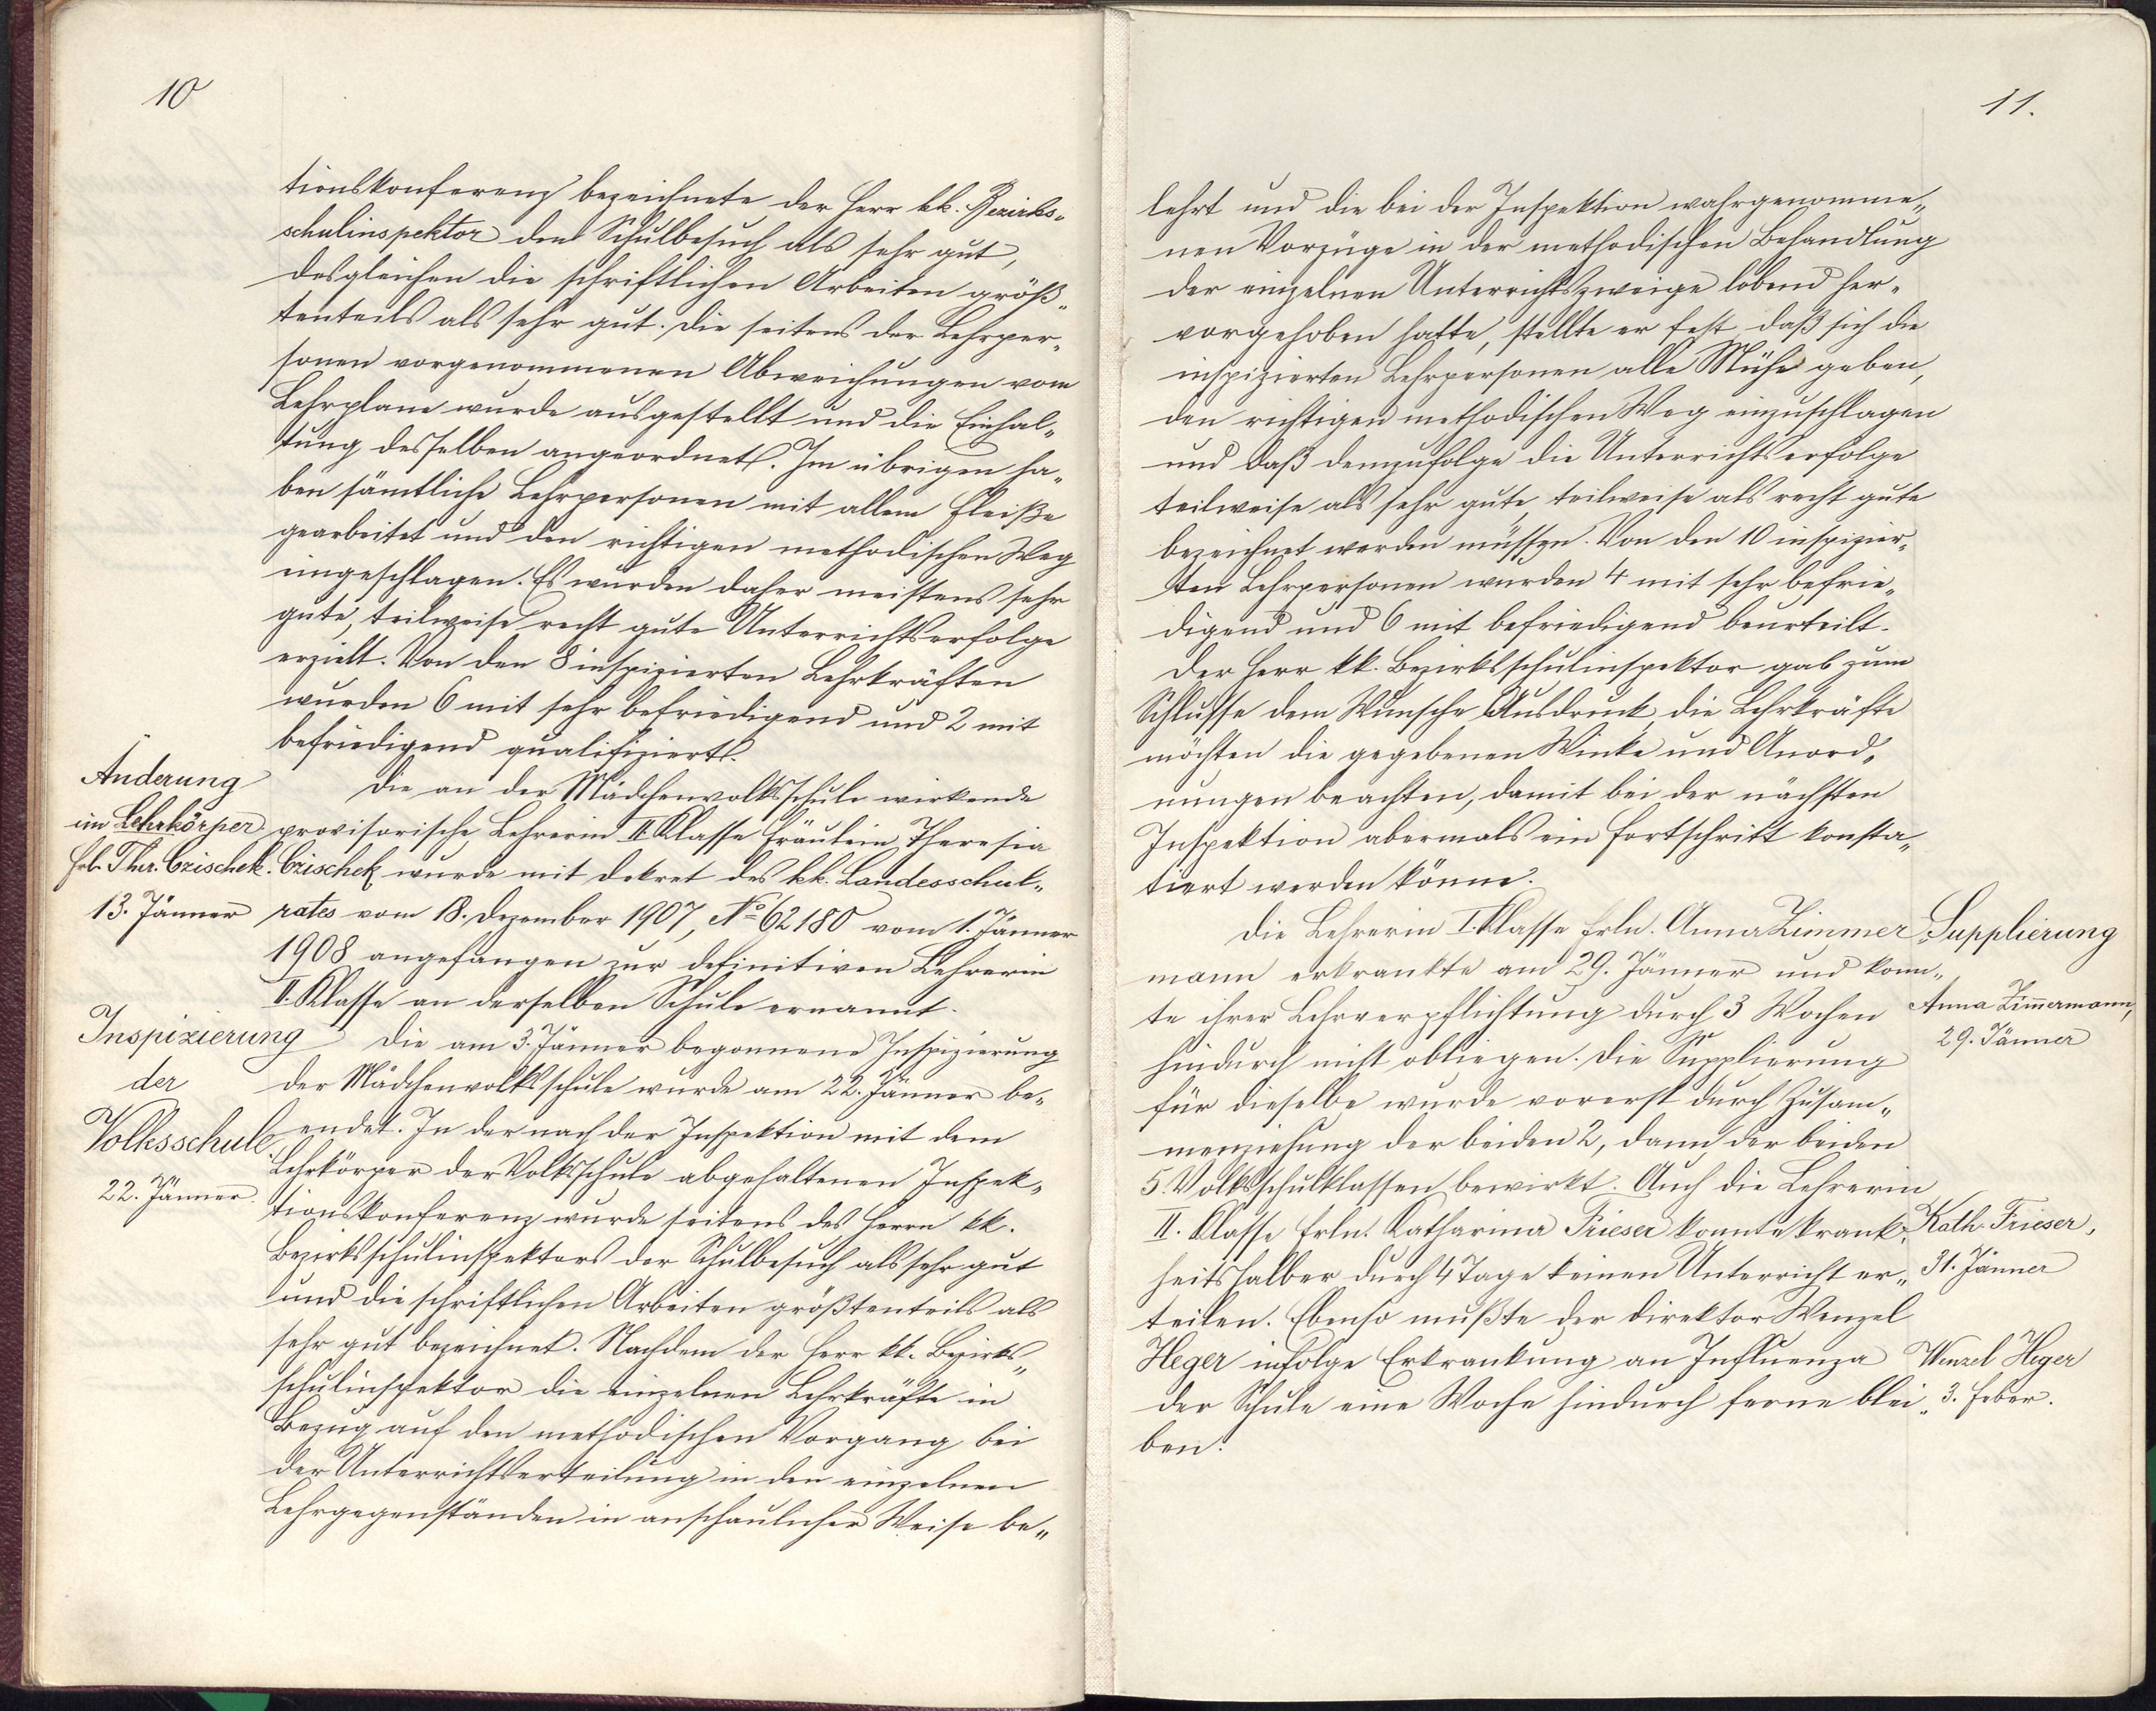 10
tionskonferenz bezeichnete der Herr kk. Bezirks„
schulinspektor den Schulbesuch als sehr gut,
desgleichen die schriftlichen Arbeiten größ„
tenteils als sehr gut. Die seitens der Lehrper„
sonen vorgenommenen Abweichungen vom
Lehrplane wurde ausgestellt und die Einhal„
tung desselben angeordnet. Im übrigen ha„
ben sämtliche Lehrpersonen mit allem Fleiße
gearbeitet und den richtigen methodischen Weg
eingeschlagen. Es wurden daher meistens sehr
gute, teilweise recht gute Unterrichtserfolge
erzielt. Von den 8 inspizierten Lehrkräften
wurden 6 mit sehr befriedigend und 2 mit
befriedigend qualifiziert.
Änderung
im Lehrkörper.
Frl. Ther. Czischek.
13. Jänner
Die an der Mädchenvolksschule wirkende
provisorische Lehrerin II. Klasse Fräulein Theresia
Czischek wurde mit Dekret des kk. Landesschul„
rates vom 18. Dezember 1907, No 62180 vom 1. Jänner
1908 angefangen zur definitiven Lehrerin
II. Klasse an derselben Schule ernannt.
Inspizierung
der
Volksschule.
22. Jänner.
Die am 3. Jänner begonnene Inspizierung
der Mädchenvolksschule wurde am 22. Jänner be„
endet. In der nach der Inspektion mit dem
Lehrkörper der Volksschule abgehaltenen Inspek„
tionskonferenz wurde seitens des Herrn kk.
Bezirksschulinspektors der Schulbesuch als sehr gut
und die schriftlichen Arbeiten größtenteils als
sehr gut bezeichnet. Nachdem der Herr kk. Bezirks„
schulinspektor die einzelnen Lehrkräfte in
Bezug auf den methodischen Vorgang bei
der Unterrichtserteilung in den einzelnen
Lehrgegenständen in anschaulicher Weise be„
11.
lehrt und die bei der Inspektion wahrgenomme„
nen Vorzüge in der methodischen Behandlung
der einzelnen Unterrichtszweige lobend her„
vorgehoben hatte, stellte er fest, daß sich die
inspizierten Lehrpersonen alle Mühe geben,
den richtigen methodischen Weg einzuschlagen
und daß demzufolge die Unterrichtserfolge
teilweise als sehr gute, teilweise als recht gute
bezeichnet werden müssen. Von den 10 inspizier„
ten Lehrpersonen wurden 4 mit sehr befrie„
digend und 6 mit befriedigend beurteilt.
Der Herr kk. Bezirksschulinspektor gab zum
Schlusse dem Wunsche Ausdruck, die Lehrkräfte
möchten die gegebenen Winke und Anord„
nungen beachten, damit bei der nächsten
Inspektion abermals ein Fortschritt konsta„
tiert werden könne.
Die Lehrerin I. Klasse Frln. Anna Zimmer„
mann erkrankte am 29. Jänner und konn„
te ihrer Lehrverpflichtung durch 3 Wochen
hindurch nicht obliegen. Die Supplierung
für dieselbe wurde vorerst durch Zusam„
menziehung der beiden 2, dann der beiden
5. Volksschulklassen bewirkt. Auch die Lehrerin
II. Klasse Frln. Katharina Frieser konnte krank„
heitshalber durch 4 Tage keinen Unterricht er„
teilen. Ebenso mußte der Direktor Wenzel
Heger infolge Erkrankung an Influenza
der Schule eine Woche hindurch ferne blei„
ben.
Supplierung
Anna Zimermann,
29. Jänner
Kath. Frieser,
31. Jänner
Wenzel Heger
3. Feber.